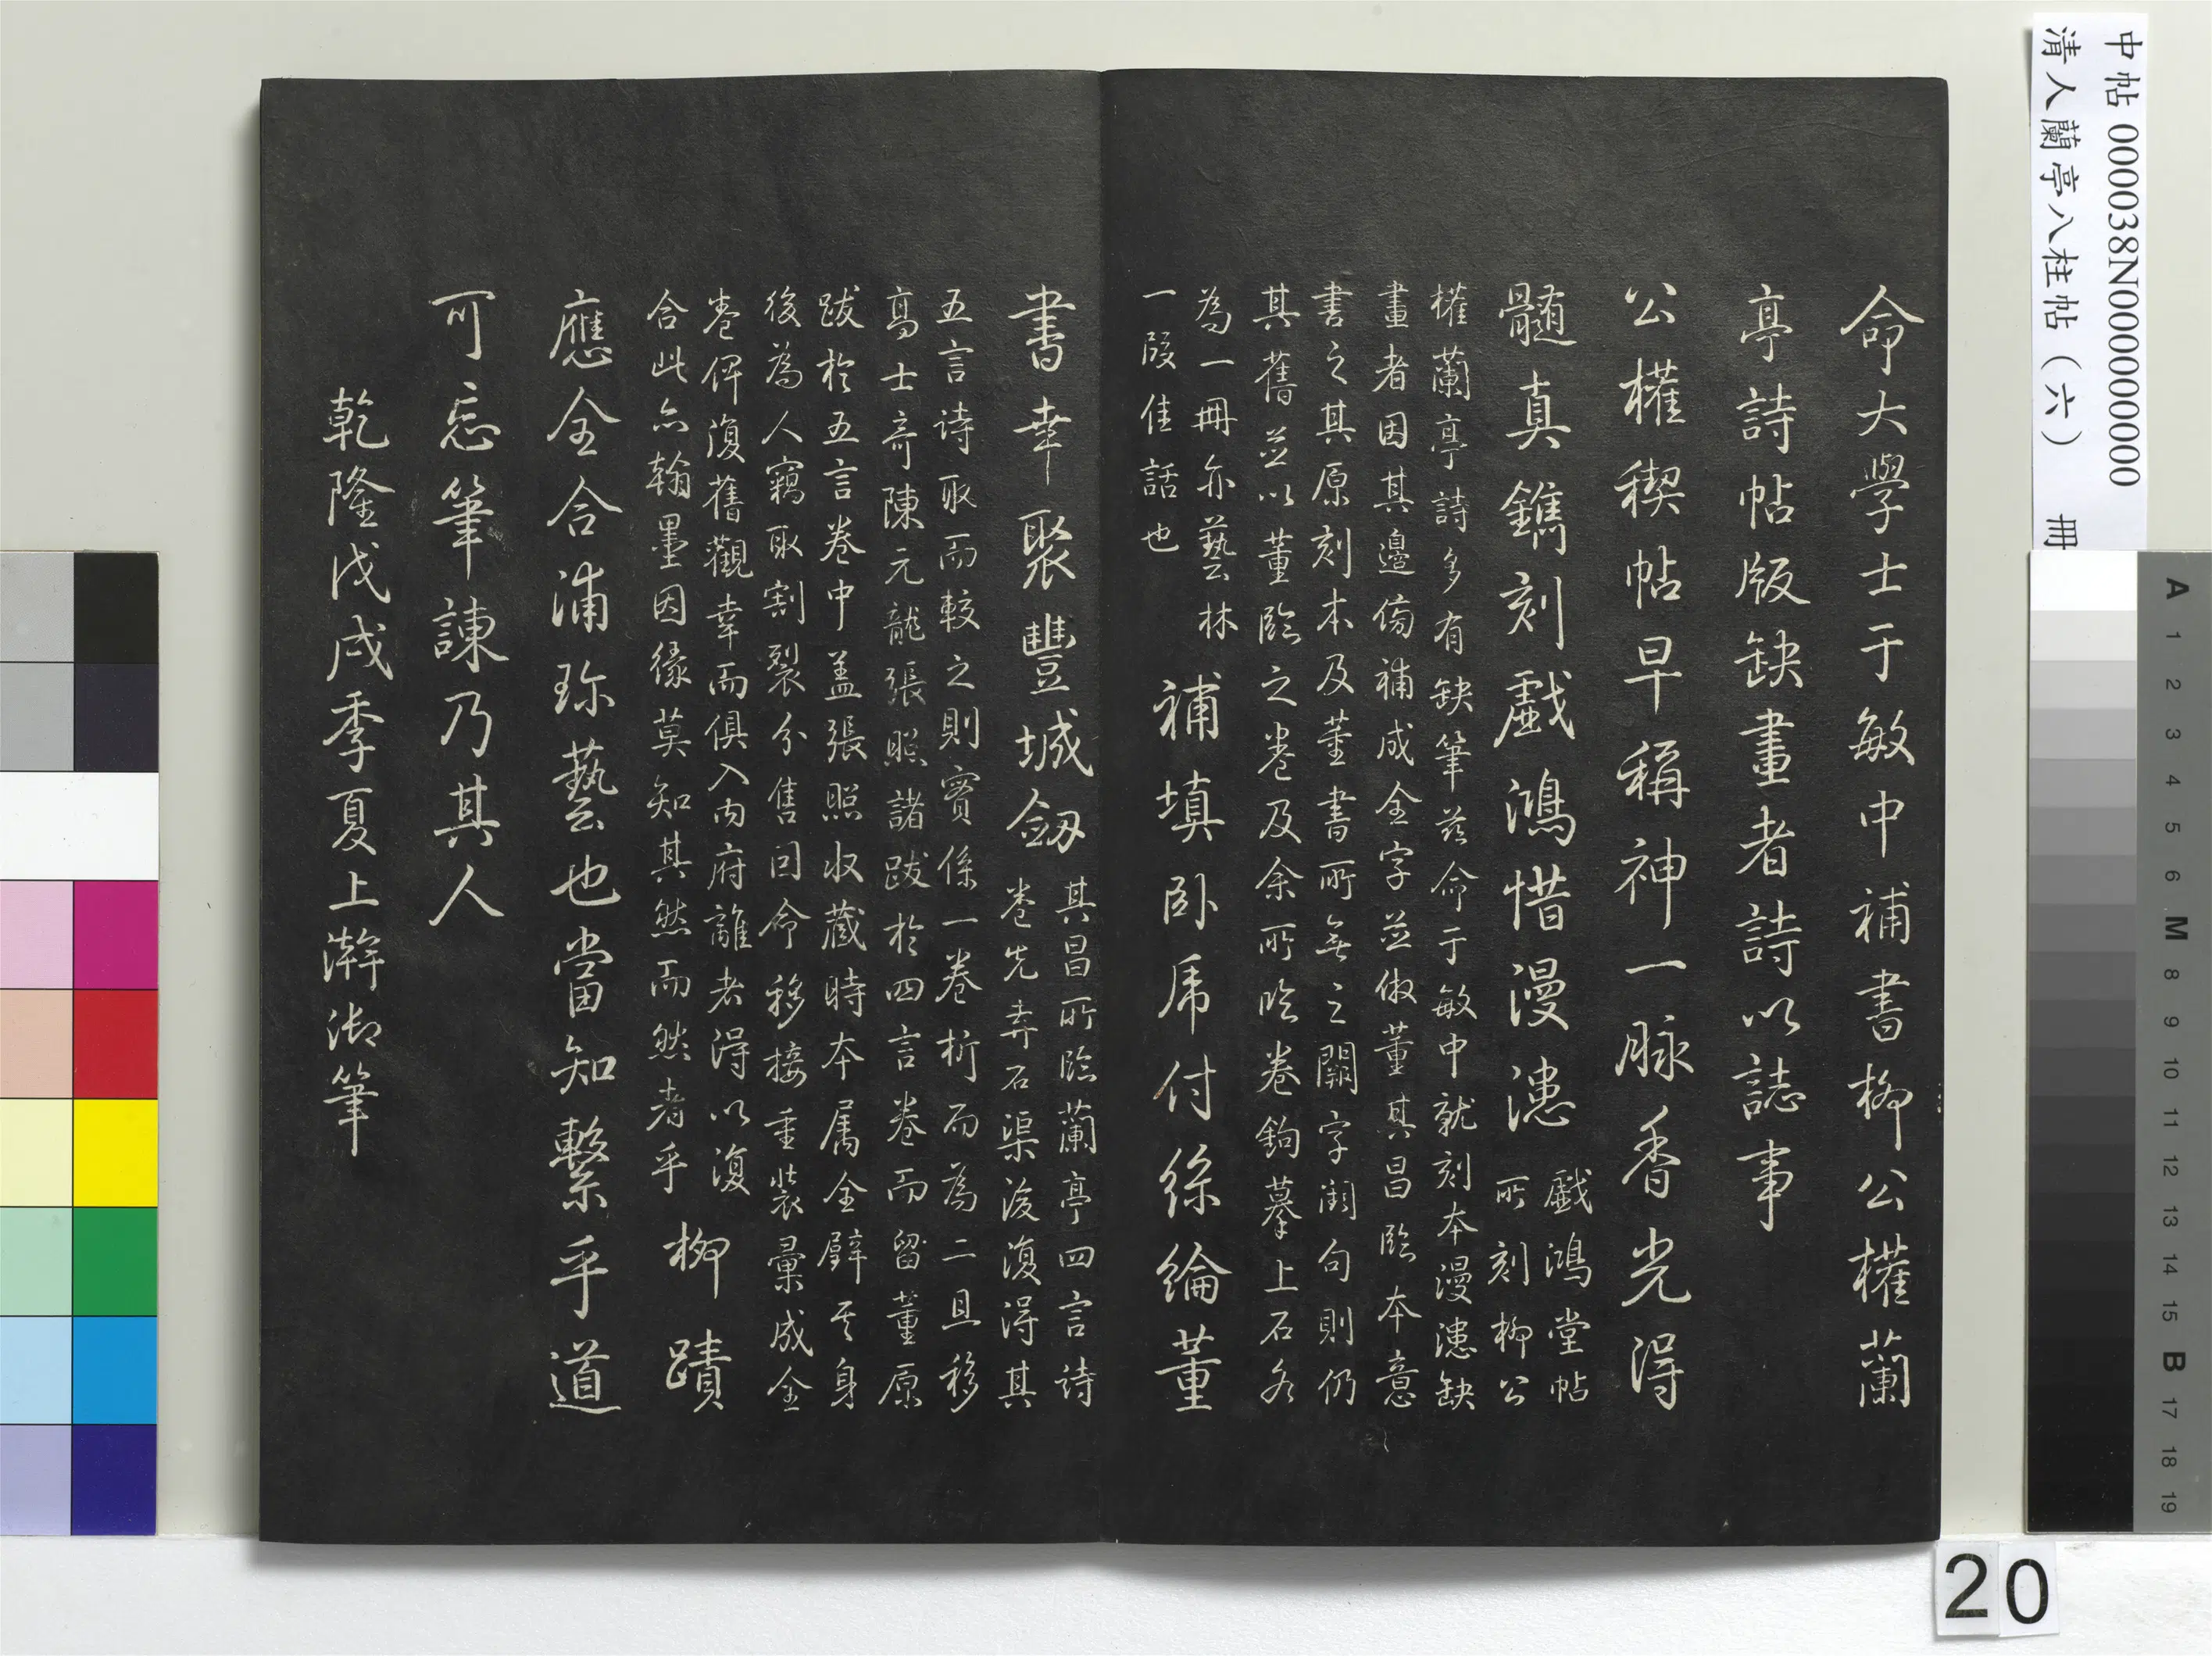 命大學士于敏中補書柳公權蘭
亭詩帖版缺畫者詩以誌事
公權稧帖早稱神一脉香光得
髓真鐫刻戲鴻惜漫漶
戲鴻堂帖
所刻柳公
權蘭亭詩多有缺筆茲命于敏中就刻本漫漶缺
畫者因其邊傍補成全字並倣董其昌臨本意
書之其原刻本及董書所無之闕字闕句則仍
其舊並以董臨之卷及余所臨卷鉤摹上石各
為一冊亦藝林
一段佳話也
補填卧帋付絲綸董
書幸聚豐城劒
其昌所臨蘭亭四言詩
卷先弆石渠後復得其
五言詩取而較之則實係一卷析而為二且移
高士奇陳元龍張照諸跋於四言卷而留董原
跋於五言卷中盖張照收藏時本属全璧其身
後為人竊取割裂分售回命移接重裝彙成全
卷俾復舊觀幸而俱入內府離者得以復
合此亦翰墨因緣莫知其然而然者乎
柳蹟
應全合浦珎藝也當知繫乎道
可忘筆諫乃其人
乾隆戊戌季夏上澣御筆
中帖 000038N000000000
清人蘭亭八柱帖（六） 冊
A 1 2 3 4 5 6 M 8 9 10 11 12 13 14 15 B 17 18 19
20